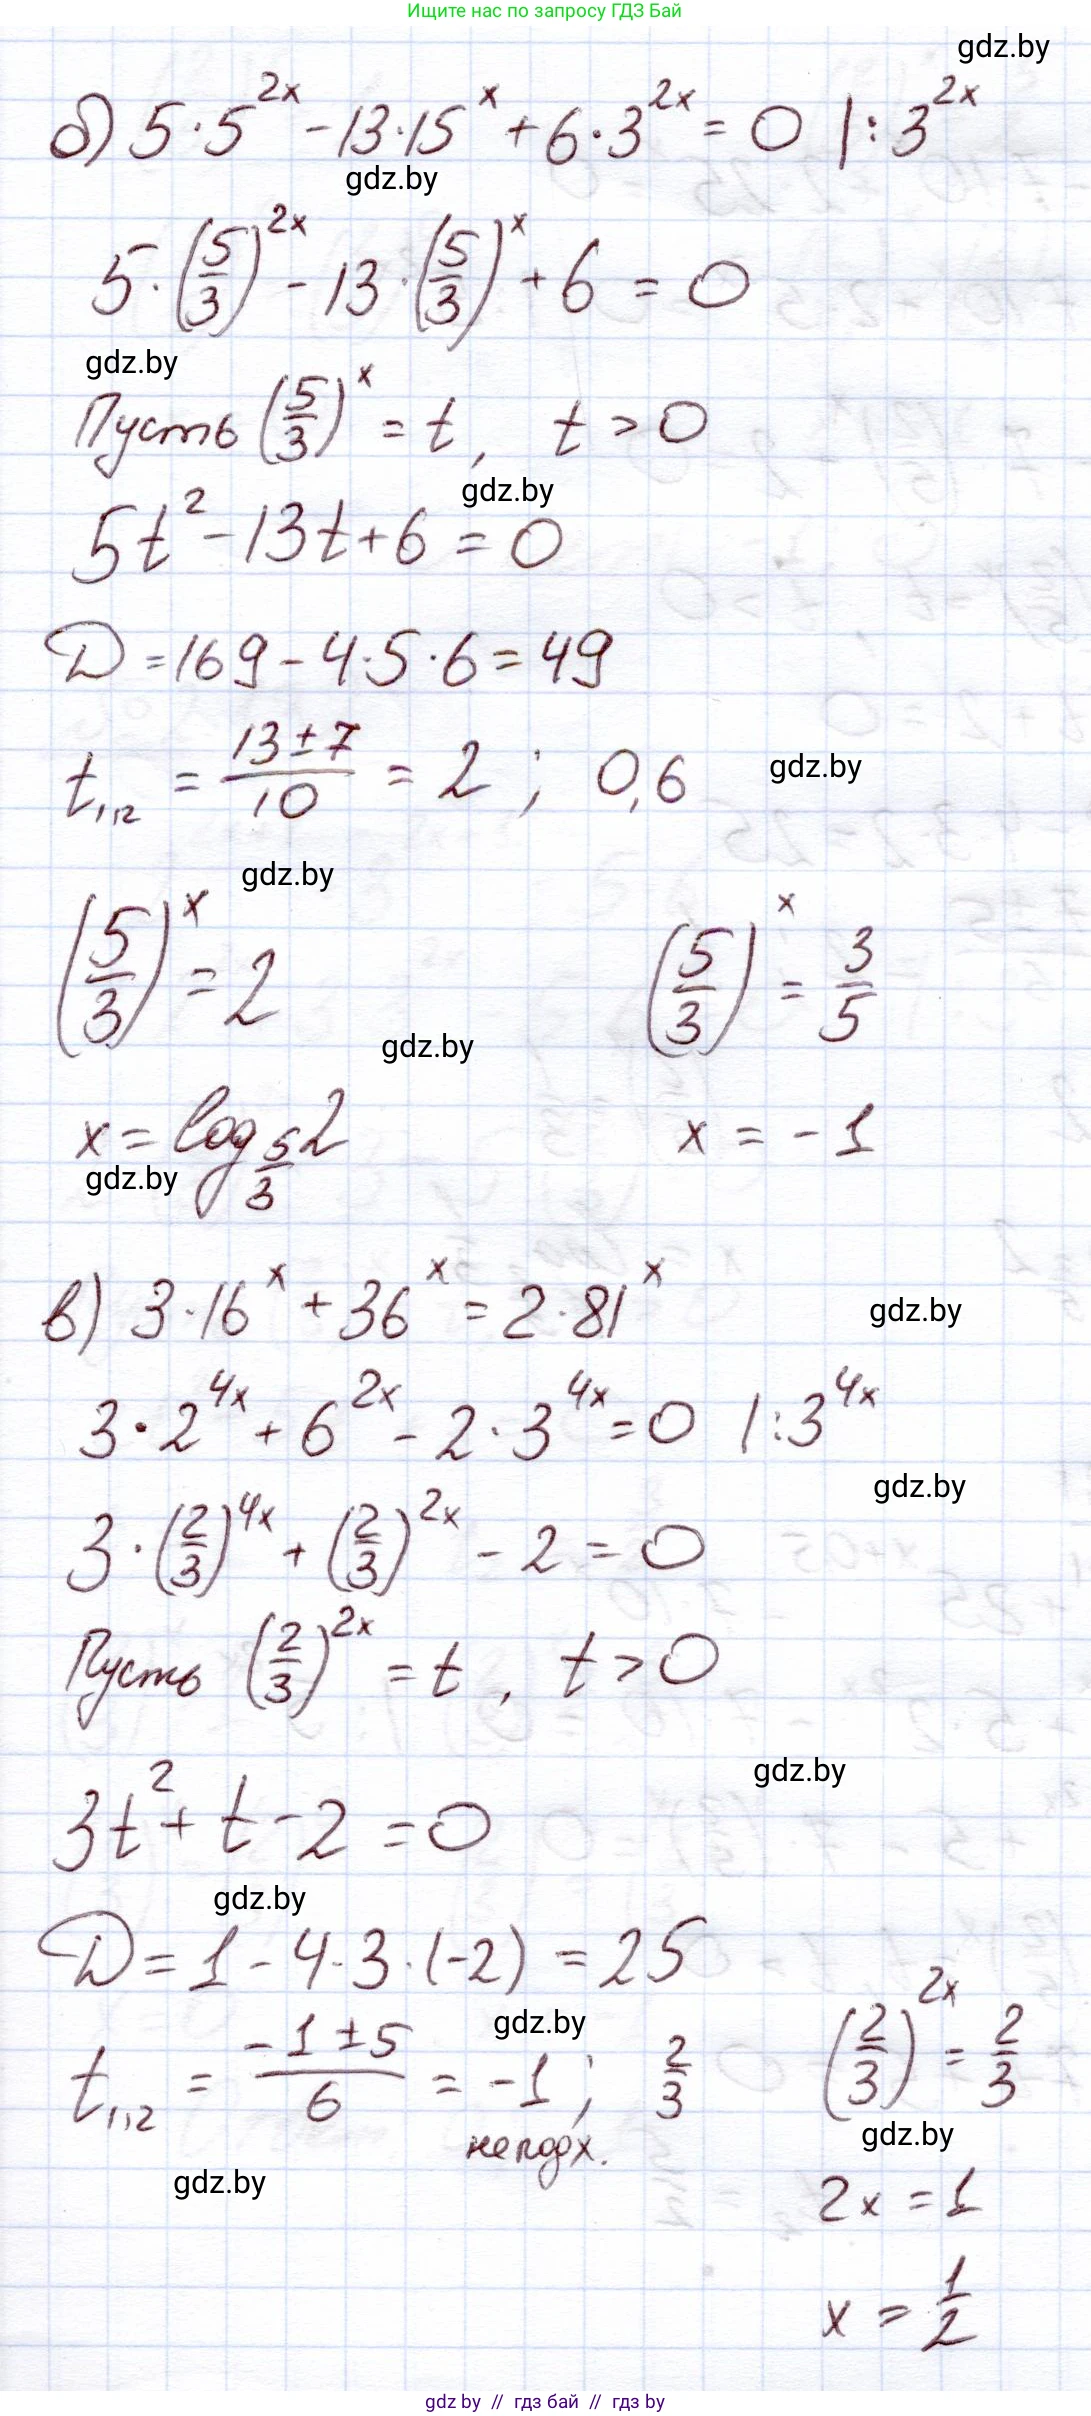 Ищите нас по запросу ГДЗ Бай
gdz.by
б) 5·5^{2x} - 13·15^x + 6·3^{2x} = 0 |:3^{2x}
gdz.by
5·(5/3)^{2x} - 13·(5/3)^x + 6 = 0
gdz.by
Пусть (5/3)^x = t, t > 0
gdz.by
5t² - 13t + 6 = 0
D = 169 - 4·5·6 = 49
t_{1,2} = (13 ± 7)/10 = 2; 0,6
gdz.by
gdz.by
(5/3)^x = 2 (5/3)^x = 3/5
gdz.by
x = log_{5/3} 2 x = -1
gdz.by
в) 3·16^x + 36^x = 2·81^x
gdz.by
3·2^{4x} + 6^{2x} - 2·3^{4x} = 0 |:3^{4x}
gdz.by
3·(2/3)^{4x} + (2/3)^{2x} - 2 = 0
Пусть (2/3)^{2x} = t, t > 0
gdz.by
3t² + t - 2 = 0
gdz.by
D = 1 - 4·3·(-2) = 25
gdz.by
t_{1,2} = (-1 ± 5)/6 = -1; 2/3 (2/3)^{2x} = 2/3
не подх.
gdz.by
gdz.by
2x = 1
x = 1/2
gdz by // гдз бай // гдз by